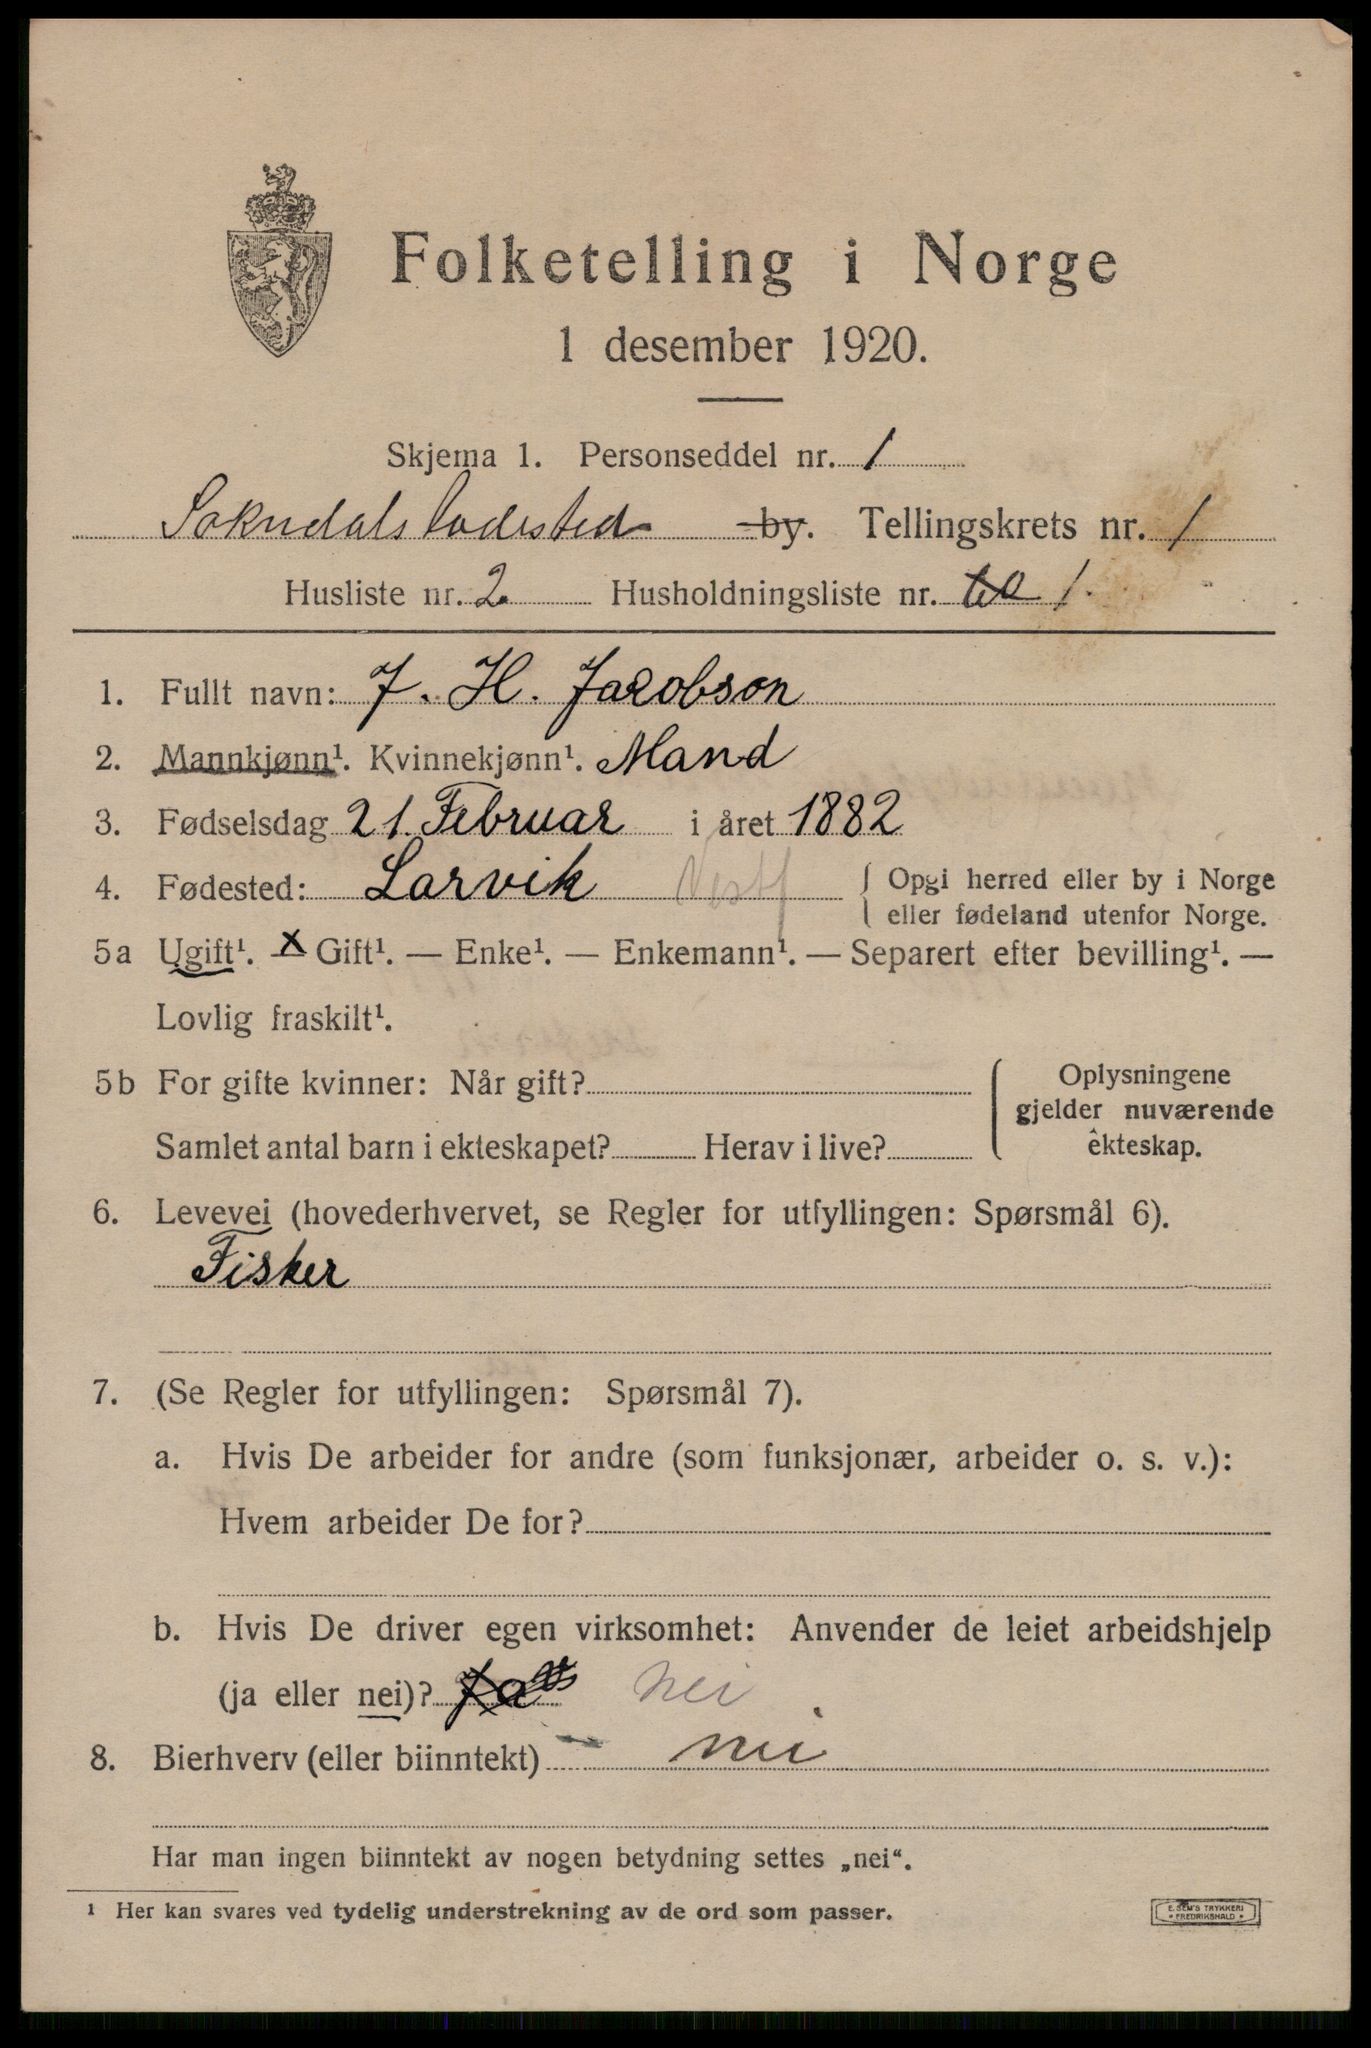 Folketelling i Norge
1 desember 1920.
Skjema 1. Personseddel nr. 1
Sokndals ladested by. Tellingskrets nr. 1
Husliste nr. 2. Husholdningsliste nr. 1.
1. Fullt navn: J. H. Jacobson
2. Mannkjønn¹. Kvinnekjønn¹. Mand
3. Fødselsdag 21. Februar i året 1882
4. Fødested: Larvik Vestf { Opgi herred eller by i Norge
eller fødeland utenfor Norge.
5a Ugift¹. x Gift¹. — Enke¹. — Enkemann¹. — Separert efter bevilling¹. —
Lovlig fraskilt¹.
5b For gifte kvinner: Når gift?
Samlet antal barn i ekteskapet? Herav i live?
Oplysningene
gjelder nuværende
ekteskap.
6. Levevei (hovederhvervet, se Regler for utfyllingen: Spørsmål 6).
Fisker
7. (Se Regler for utfyllingen: Spørsmål 7).
a. Hvis De arbeider for andre (som funksjonær, arbeider o. s. v.):
Hvem arbeider De for?
b. Hvis De driver egen virksomhet: Anvender de leiet arbeidshjelp
(ja eller nei)? Ja nei
8. Bierhverv (eller biinntekt) nei
Har man ingen biinntekt av nogen betydning settes „nei“.
¹ Her kan svares ved tydelig understrekning av de ord som passer.
E. SEM'S TRYKKERI
• FREDRIKSHALD •